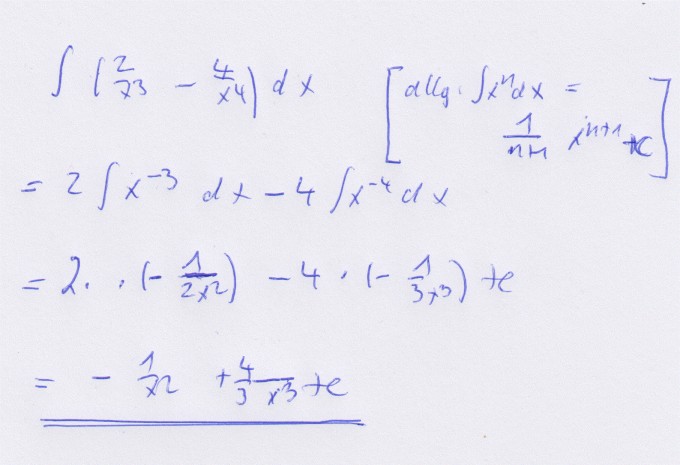 ∫ (2/x³ − 4/x⁴) dx [allg. ∫xⁿdx =
1/(n+1) xⁿ⁺¹ +C]
= 2 ∫ x⁻³ dx − 4 ∫ x⁻⁴ dx
= 2 · · (− 1/(2x²)) − 4 · (− 1/(3x³)) + C
= − 1/x² + 4/(3x³) + C